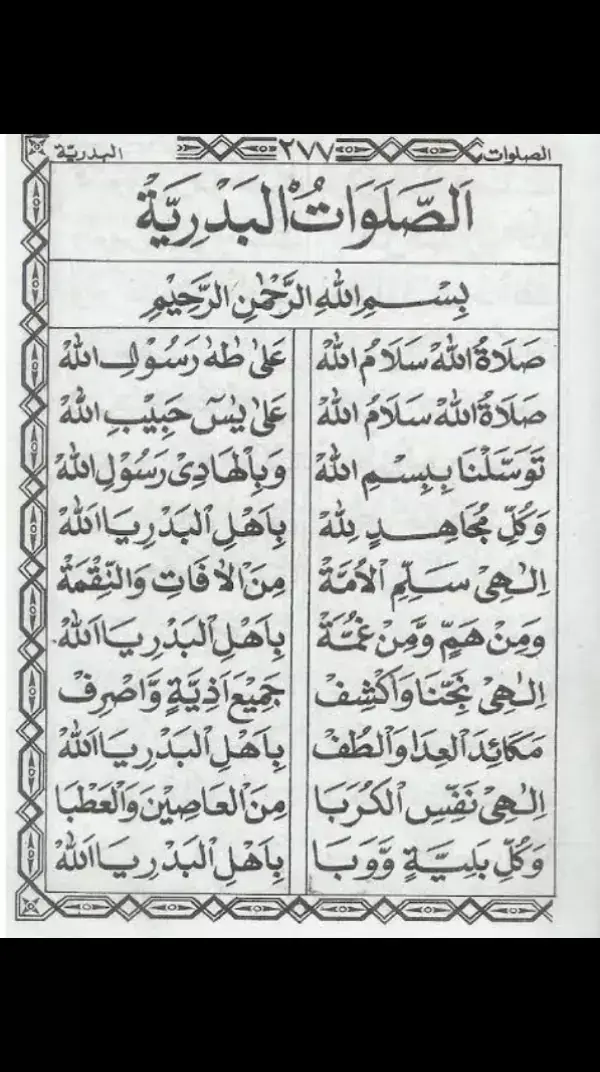 الصلوات ٢٧٧ البدريّة
اَلصَّلَوَاتُ الْبَدْرِيَّةُ
بِسْمِ اللهِ الرَّحْمٰنِ الرَّحِيْمِ
صَلَاةُ اللهْ سَلَامُ اللهْ عَلَى طٰهٰ رَسُوْلِ اللهْ
صَلَاةُ اللهْ سَلَامُ اللهْ عَلَى يٰسٓ حَبِيْبِ اللهْ
تَوَسَّلْنَا بِبِسْمِ اللهْ وَبِالْهَادِىْ رَسُوْلِ اللهْ
وَكُلِّ مُجَاهِدٍ لِلهْ بِاَهْلِ الْبَدْرِ يَا اَللهْ
اِلٰهِىْ سَلِّمِ الْاُمَّةْ مِنَ الْاٰفَاتِ وَالنِّقْمَةْ
وَمِنْ هَمٍّ وَّمِنْ غُمَّةْ بِاَهْلِ الْبَدْرِ يَا اَللهْ
اِلٰهِىْ نَجِّنَا وَاكْشِفْ جَمِيْعَ اَذِيَّةٍ وَّاصْرِفْ
مَكَائِدَ الْعِدَا وَالْطُفْ بِاَهْلِ الْبَدْرِ يَا اَللهْ
اِلٰهِىْ نَفِّسِ الْكُرَبَا مِنَ الْعَاصِيْنَ وَالْعَطْبَا
وَكُلِّ بَلِيَّةٍ وَّوَبَا بِاَهْلِ الْبَدْرِ يَا اَللهْ